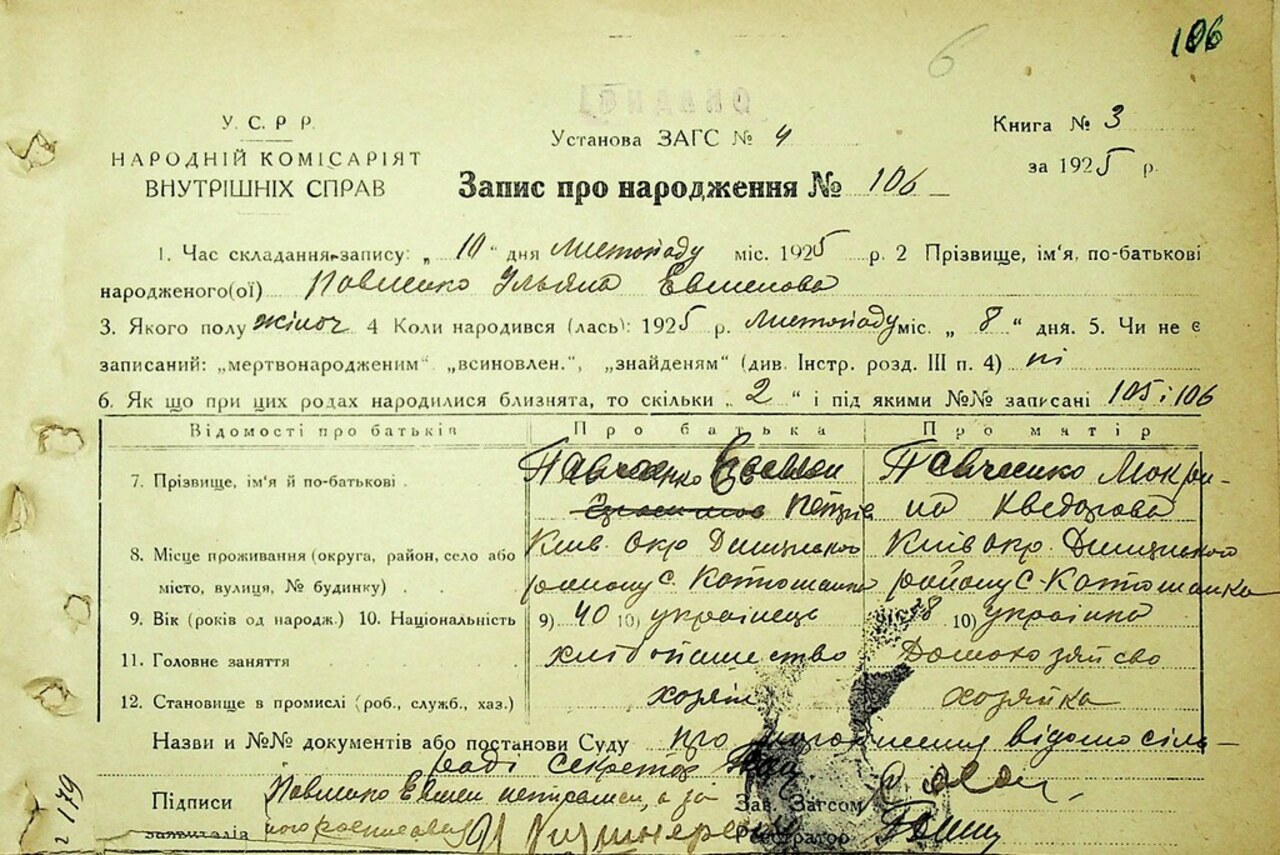 106
6
У. С. Р Р.
НАРОДНІЙ КОМІСАРІЯТ
ВНУТРІШНІХ СПРАВ
Установа ЗАГС № 4
Книга № 3
за 1925 р.
Запис про народження № 106
1. Час складання запису: „ 10 " дня Листопаду міс. 1925 р. 2 Прізвище, ім'я, по-батькові
народженого(ої) Павченко Ульяна Евменова
3. Якого полу жіноч 4 Коли народився (лась): 1925 р. Листопаду міс. „ 8 " дня. 5. Чи не є
записаний: „мертвонародженим" „всиновлен.", „знайденям" (див. Інстр. розд. III п. 4) ні
6. Як що при цих родах народилися близнята, то скільки „ 2 " і під якими №№ записані 105 і 106
Відомості про батьків Про батька Про матір
7. Прізвище, ім'я й по-батькові . Павченко Евмен Павченко Мокри-
Петрів на Кведорова
8. Місце проживання (округа, район, село або Київ. Окр Димерського Київ Окр. Димерського
місто, вулиця, № будинку) . . району с. району С-
9. Вік (років од народж.) 10. Національність 9) 40 10) українець 9) 38 10) українка
11. Головне заняття хлібопашество Домохозяйсво
12. Становище в промислі (роб., служб., хаз.) хозяїн хозяйка
Назви и №№ документів або постанови Суду про відомо сіль-
раді секретор
Підписи Павченко Евмен а за Зав. Загсом
заявителів него Реєстратор
2 179